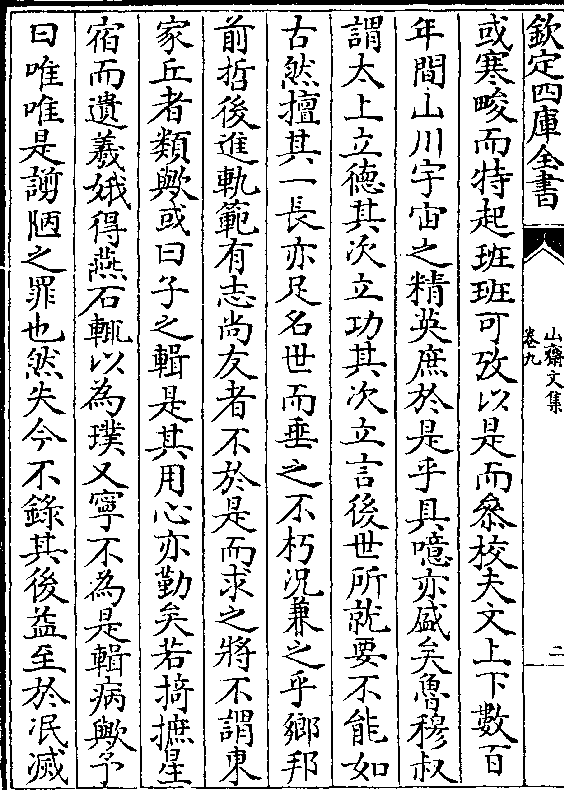 欽定四庫全書
山齋文集
卷九
二
或寒畯而特起班班可攷以是而叅校夫文上下數百
年間山川宇宙之精英庶於是乎具噫亦盛矣魯穆叔
謂太上立德其次立功其次立言後世所就要不能如
古然擅其一長亦足名世而垂之不朽況兼之乎鄉邦
前哲後進軌範有志尚友者不於是而求之將不謂東
家丘者類歟或曰子之輯是其用心亦勤矣若掎摭星
宿而遺羲娥得燕石輒以為璞又寧不為是輯病歟予
曰唯唯是謭陋之罪也然失今不錄其後益至於泯滅